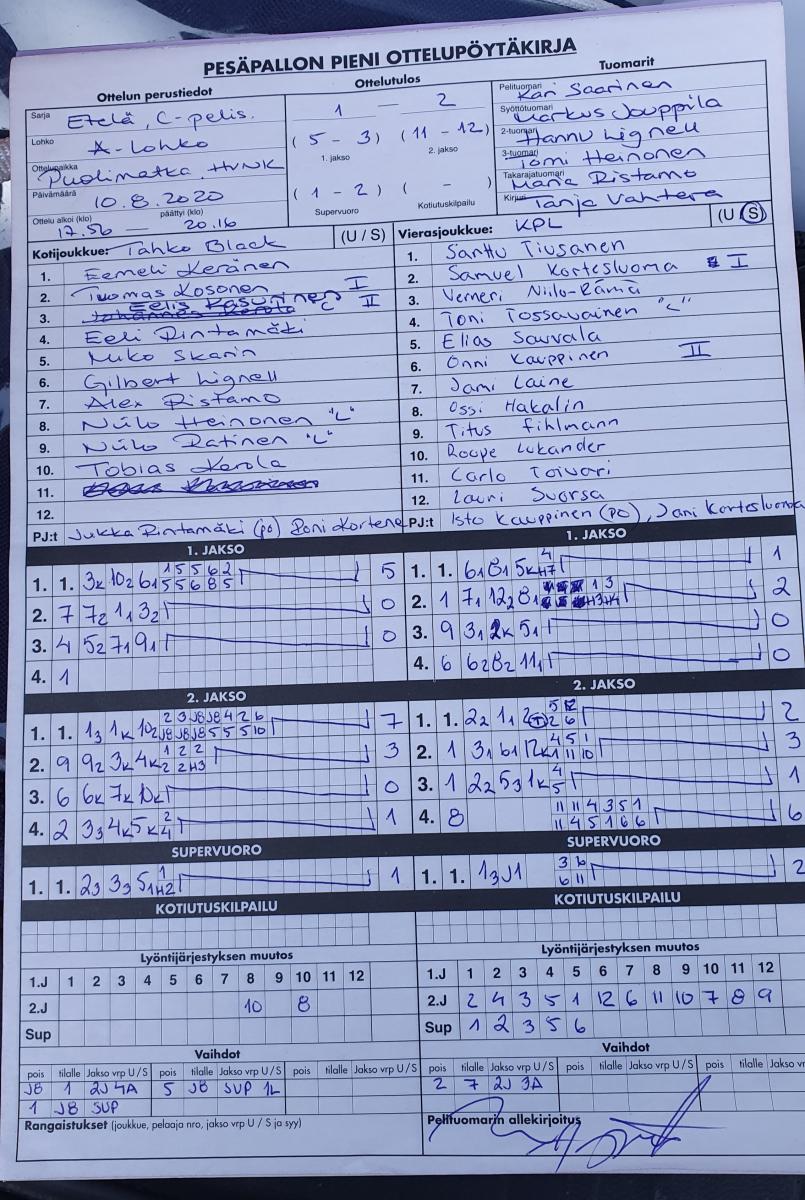 PESÄPALLON PIENI OTTELUPÖYTÄKIRJA
Ottelun perustiedot
Sarja Etelä, C-pelis.
Lohko A-Lohko
Ottelupaikka Puolimatka, HVNK
Päivämäärä 10.8.2020
Ottelu alkoi (klo) päättyi (klo)
17.56 — 20.16
Ottelutulos
1 — 2
( 5 - 3 ) ( 11 - 12 )
1. jakso 2. jakso
( 1 - 2 ) ( - )
Supervuoro Kotiutuskilpailu
Tuomarit
Pelituomari Kari Saarinen
Syöttötuomari Markus Jouppila
2-tuomari Hannu Lignell
3-tuomari Tomi Heinonen
Takarajatuomari Maria Ristamo
Kirjuri Tanja Vahtera
Kotijoukkue: Tahko Black (U / S)
1. Eemeli Keränen
2. Tuomas Kosonen I
3. Eelis Kasurinen C II
4. Eeli Rintamäki
5. Niko Skarin
6. Gilbert Lignell
7. Alex Ristamo
8. Niilo Heinonen "L"
9. Niilo Ratinen "L"
10. Tobias Kerola
11.
12.
PJ:t Jukka Rintamäki (po) Roni Kortene
Vierasjoukkue: KPL (U / S)
1. Santtu Tiusanen
2. Samuel Kortesluoma I
3. Verneri Niilo-Rämä
4. Toni Tossavainen "L"
5. Elias Sauvala
6. Onni Kauppinen II
7. Jami Laine
8. Ossi Hakalin
9. Titus Fihlmann
10. Roope Lukander
11. Carlo Toivari
12. Lauri Suorsa
PJ:t Isto Kauppinen (po), Jani Kortesluoma
1. JAKSO
1. 1. 3k 102 61 5
2. 7 72 11 32 0
3. 4 52 71 91 0
4. 1
1. JAKSO
1. 1. 61 81 5k 1
2. 1 71 122 81 2
3. 9 31 2k 51 0
4. 6 62 82 111 0
2. JAKSO
1. 1. 13 1k 102 7
2. 9 92 3k 4k 3
3. 6 6k 7k 10k 0
4. 2 33 4k 5k 1
2. JAKSO
1. 1. 22 11 2
2. 1 31 61 12k 3
3. 1 22 53 1k 1
4. 8 6
SUPERVUORO
1. 1. 23 33 51 1
SUPERVUORO
1. 1. 13 J1 2
KOTIUTUSKILPAILU
KOTIUTUSKILPAILU
Lyöntijärjestyksen muutos
1.J 1 2 3 4 5 6 7 8 9 10 11 12
2.J 10 8
Sup
Lyöntijärjestyksen muutos
1.J 1 2 3 4 5 6 7 8 9 10 11 12
2.J 2 4 3 5 1 12 6 11 10 7 8 9
Sup 1 2 3 5 6
Vaihdot
pois tilalle Jakso vrp U / S pois tilalle Jakso vrp U / S pois tilalle Jakso vrp U / S
J8 1 2J 4A 5 J8 SUP 1L
1 J8 SUP
Vaihdot
pois tilalle Jakso vrp U / S pois tilalle Jakso vrp U / S pois tilalle Jakso vrp
2 7 2J 3A
Rangaistukset (joukkue, pelaaja nro, jakso vrp U / S ja syy)
Pelituomarin allekirjoitus